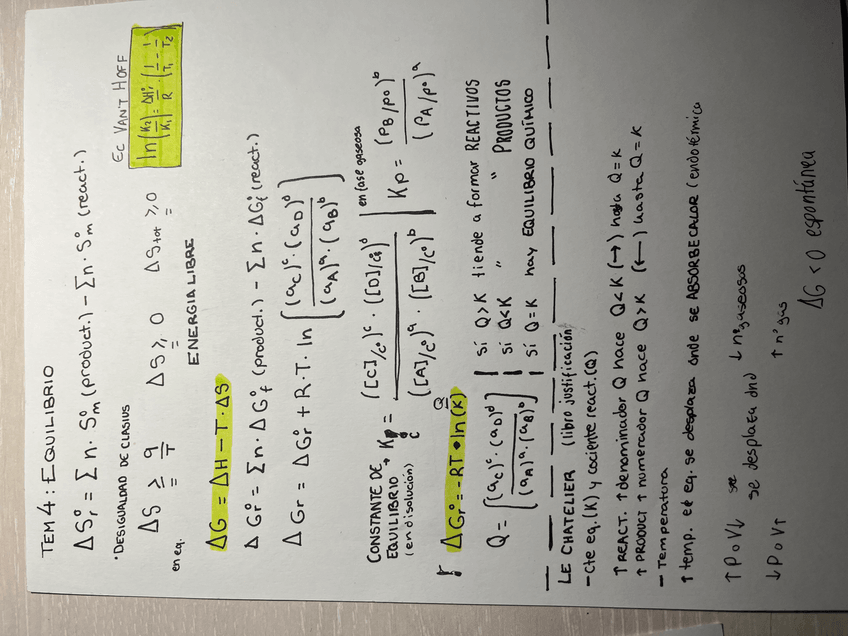 TEM 4: EQUILIBRIO
ΔSr° = Σn · Sm° (product.) - Σn · Sm° (react.)
EC VANT HOFF
ln(K2/K1) = ΔHr°/R · (1/T1 - 1/T2)
· DESIGUALDAD DE CLASIUS
ΔS ≥ q/T ΔS ≥ 0 ΔStot ≥ 0
en eq. = = =
ENERGIA LIBRE
ΔG = ΔH - T · ΔS
ΔGr° = Σn · ΔGf° (product.) - Σn · ΔGf° (react.)
ΔGr = ΔGr° + R.T. ln [(aC)^c · (aD)^d / (aA)^a · (aB)^b]
CONSTANTE DE
EQUILIBRIO → Kc = ([C]/c°)^c · ([D]/c°)^d / ([A]/c°)^a · ([B]/c°)^b
(en disolución)
en fase gaseosa
Kp = (PB/P°)^b / (PA/P°)^a
ΔGr° = -RT · ln(K)
Q
Q = [(aC)^c · (aD)^d / (aA)^a · (aB)^b]
sí Q>K tiende a formar REACTIVOS
sí Q<K " " PRODUCTOS
sí Q=K hay EQUILIBRIO QUÍMICO
LE CHATELIER (libro justificación)
- Cte eq. (K) y cociente react. (Q)
↑ REACT. ↑ denominador Q hace Q<K (→) hasta Q=K
↑ PRODUCT ↑ numerador Q hace Q>K (←) hasta Q=K
- Temperatura
↑ temp. el eq. se desplaza onde se ABSORBE CALOR (endotérmica
↑ P o V↓ se desplaza dnd ↓ nº gaseosos
↓ P o V↑ ↑ nº gas
ΔG < 0 espontánea